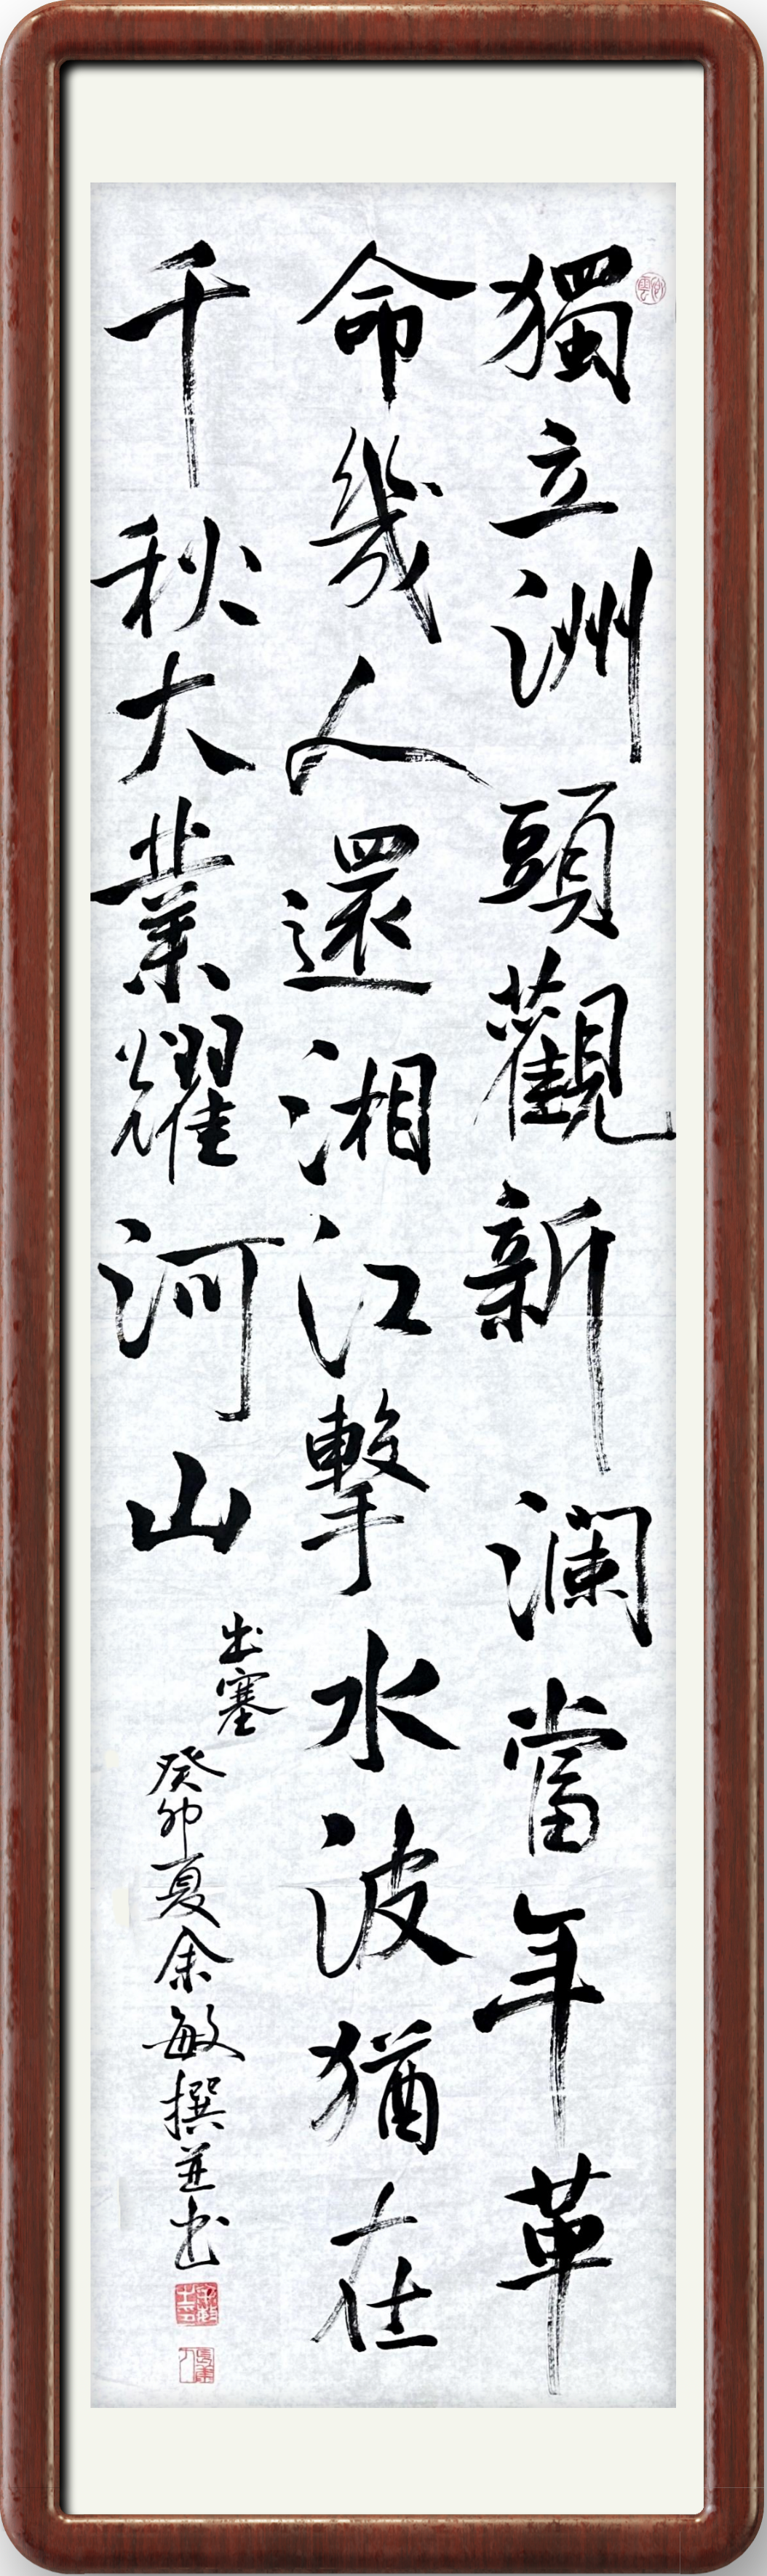 獨立洲頭觀新瀾當年革
命幾人還湘江擊水波猶在
千秋大業耀河山
出塞
癸卯夏余敏撰並书